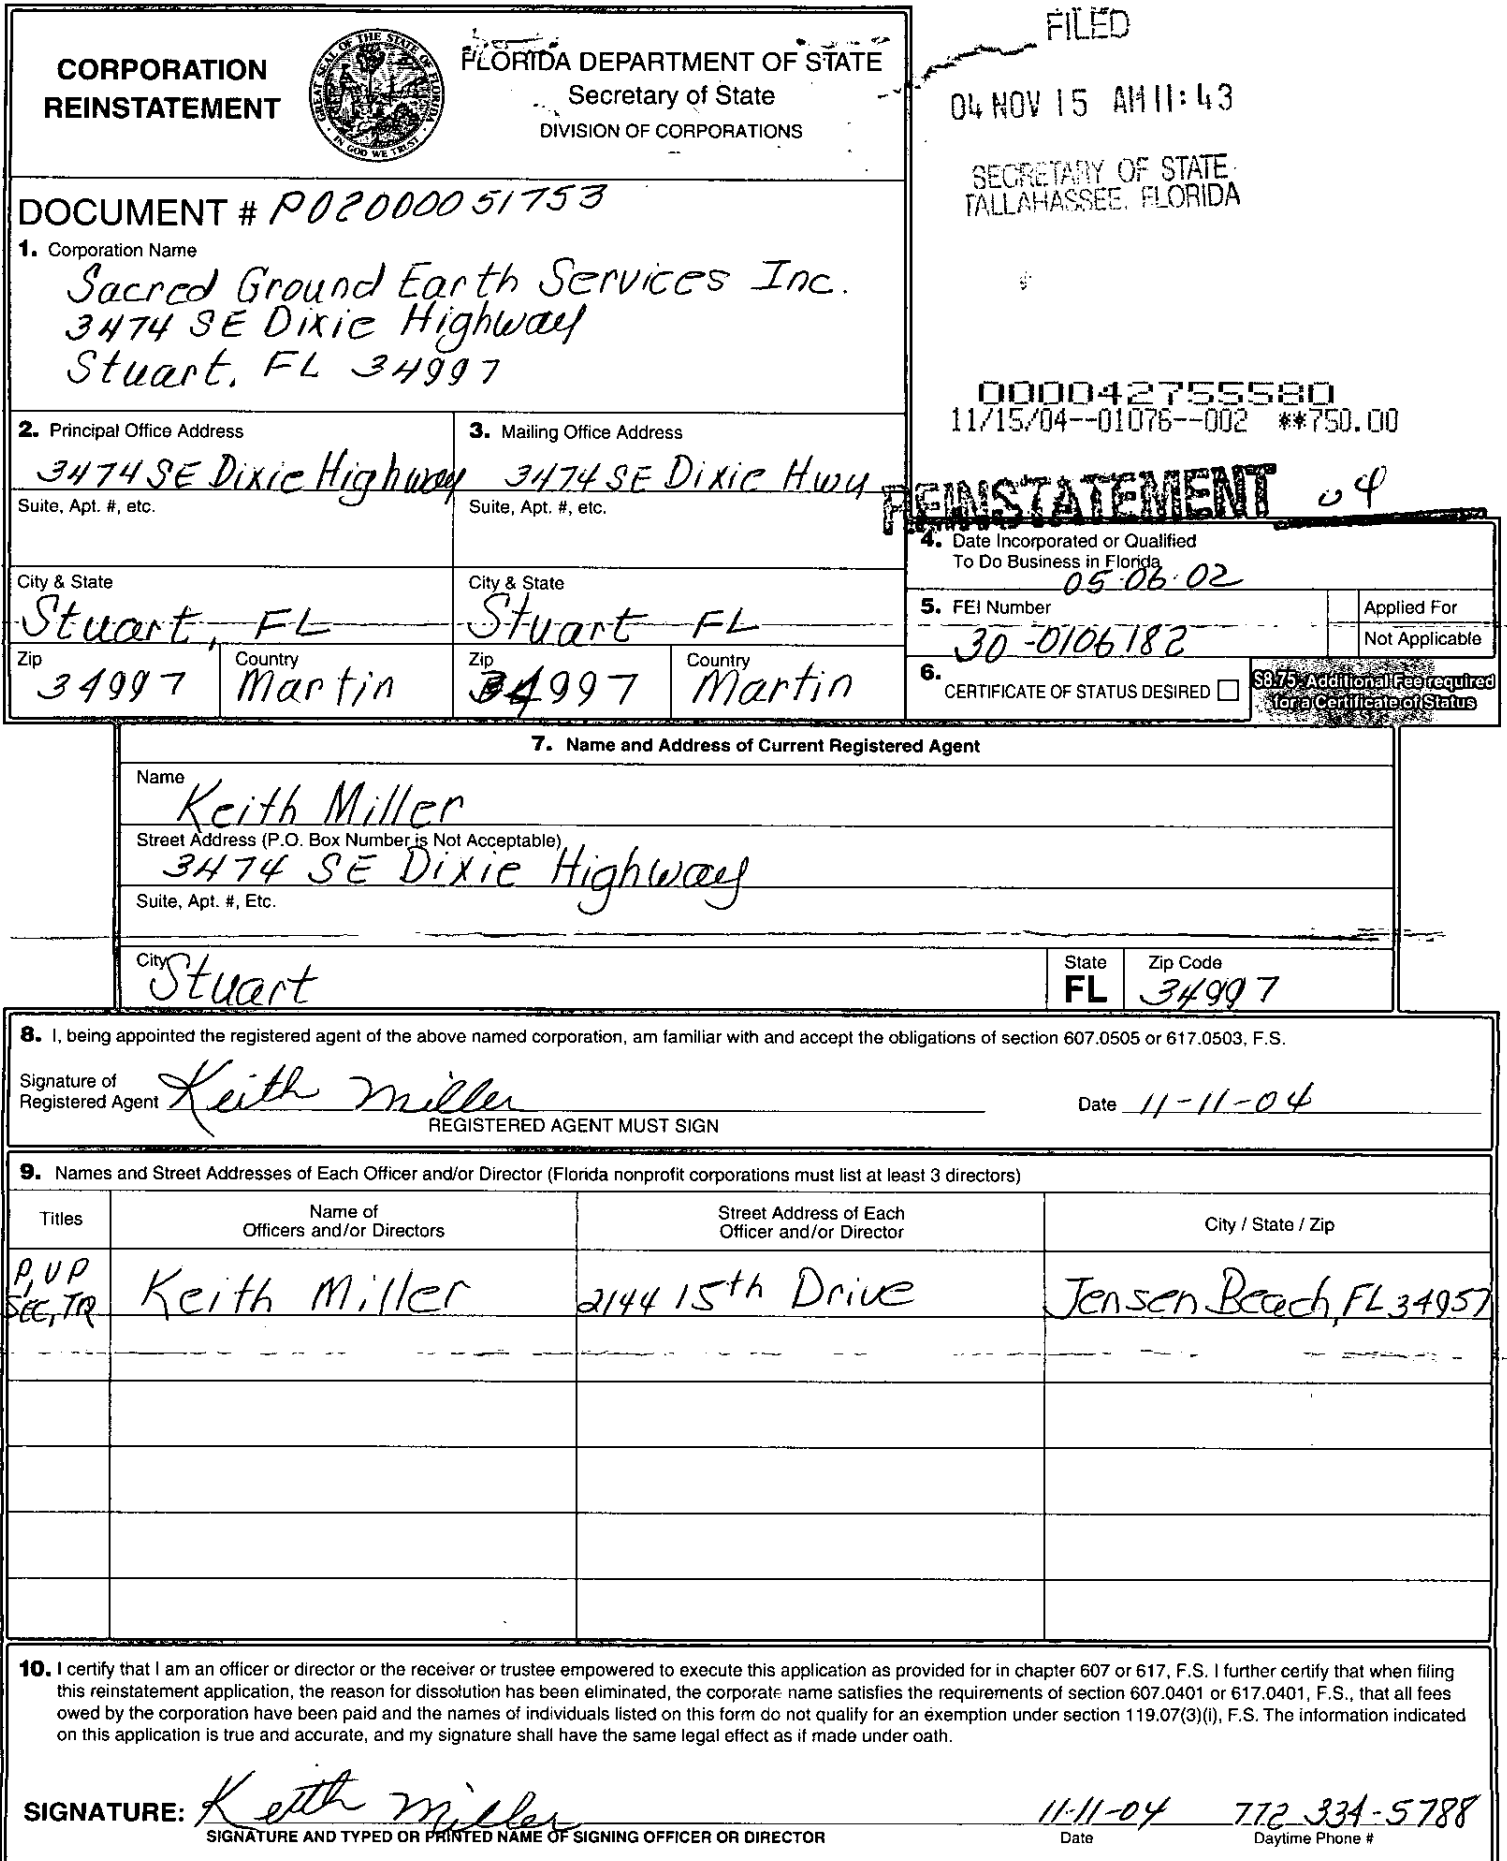 CORPORATION
REINSTATEMENT
GREAT SEAL OF THE STATE OF FLORIDA
IN GOD WE TRUST
FLORIDA DEPARTMENT OF STATE
Secretary of State
DIVISION OF CORPORATIONS
FILED
04 NOV 15 AM 11:43
SECRETARY OF STATE
TALLAHASSEE, FLORIDA
DOCUMENT # P02000051753
1. Corporation Name
Sacred Ground Earth Services Inc.
3474 SE Dixie Highway
Stuart, FL 34997
000042755580
11/15/04--01076--002 **750.00
REINSTATEMENT 04
2. Principal Office Address
3474 SE Dixie Highway
Suite, Apt. #, etc.
City & State
Stuart, FL
Zip
34997
Country
Martin
3. Mailing Office Address
3474 SE Dixie Hwy
Suite, Apt. #, etc.
City & State
Stuart FL
Zip
34997
Country
Martin
4. Date Incorporated or Qualified
To Do Business in Florida
05.06.02
5. FEI Number
30-0106182
Applied For
Not Applicable
6.
CERTIFICATE OF STATUS DESIRED
$8.75 Additional Fee required
for a Certificate of Status
7. Name and Address of Current Registered Agent
Name
Keith Miller
Street Address (P.O. Box Number is Not Acceptable)
3474 SE Dixie Highway
Suite, Apt. #, Etc.
City
Stuart
State
FL
Zip Code
34997
8. I, being appointed the registered agent of the above named corporation, am familiar with and accept the obligations of section 607.0505 or 617.0503, F.S.
Signature of
Registered Agent Keith Miller
Date 11-11-04
REGISTERED AGENT MUST SIGN
9. Names and Street Addresses of Each Officer and/or Director (Florida nonprofit corporations must list at least 3 directors)
Titles
Name of
Officers and/or Directors
Street Address of Each
Officer and/or Director
City / State / Zip
P, VP
SEC, TR
Keith Miller
2144 15th Drive
Jensen Beach, FL 34957
10. I certify that I am an officer or director or the receiver or trustee empowered to execute this application as provided for in chapter 607 or 617, F.S. I further certify that when filing
this reinstatement application, the reason for dissolution has been eliminated, the corporate name satisfies the requirements of section 607.0401 or 617.0401, F.S., that all fees
owed by the corporation have been paid and the names of individuals listed on this form do not qualify for an exemption under section 119.07(3)(i), F.S. The information indicated
on this application is true and accurate, and my signature shall have the same legal effect as if made under oath.
SIGNATURE: Keith Miller
11-11-04
772 334-5788
SIGNATURE AND TYPED OR PRINTED NAME OF SIGNING OFFICER OR DIRECTOR
Date
Daytime Phone #